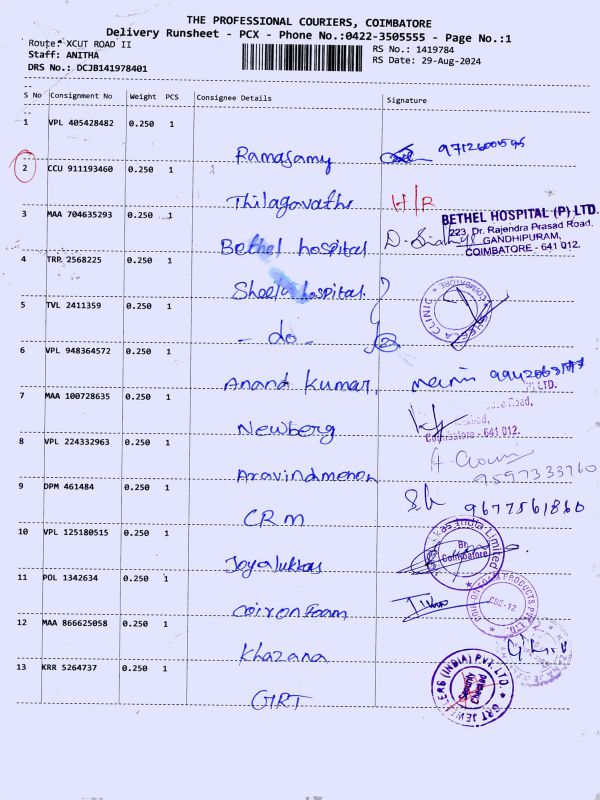 THE PROFESSIONAL COURIERS, COIMBATORE
Delivery Runsheet - PCX - Phone No.:0422-3505555 - Page No.:1
Route: XCUT ROAD II
RS No.: 1419784
Staff: ANITHA
RS Date: 29-Aug-2024
DRS No.: DCJB141978401
S No Consignment No Weight PCS Consignee Details Signature
1 VPL 405428482 0.250 1
Ramasamy
2 CCU 911193460 0.250 1
Thilagavathi H/R
3 MAA 704635293 0.250 1
Bethel hospital
BETHEL HOSPITAL (P) LTD.
223, Dr. Rajendra Prasad Road,
GANDHIPURAM,
COIMBATORE - 641 012.
4 TRP 2568225 0.250 1
Sheela hospital
SHEELA CLINIC * COIMBATORE *
5 TVL 2411359 0.250 1
- do - 2
6 VPL 948364572 0.250 1
Anand Kumar.
7 MAA 100728635 0.250 1
Newberg
LTD.
Road,
Coimbatore - 641 012.
8 VPL 224332963 0.250 1
Aravindmenon
7597333760
9 DPM 461484 0.250 1
CRM 9677561860
10 VPL 125180515 0.250 1
Joyalukkas
India Limited
Coimbatore
11 POL 1342634 0.250 1
Coironfoam
FOAM PRODUCTS PVT. LTD.
CBE-12
12 MAA 866625058 0.250 1
Khazana
13 KRR 5264737 0.250 1
GRT
GRT JEWELLERS (INDIA) PVT. LTD.
Security
Checked